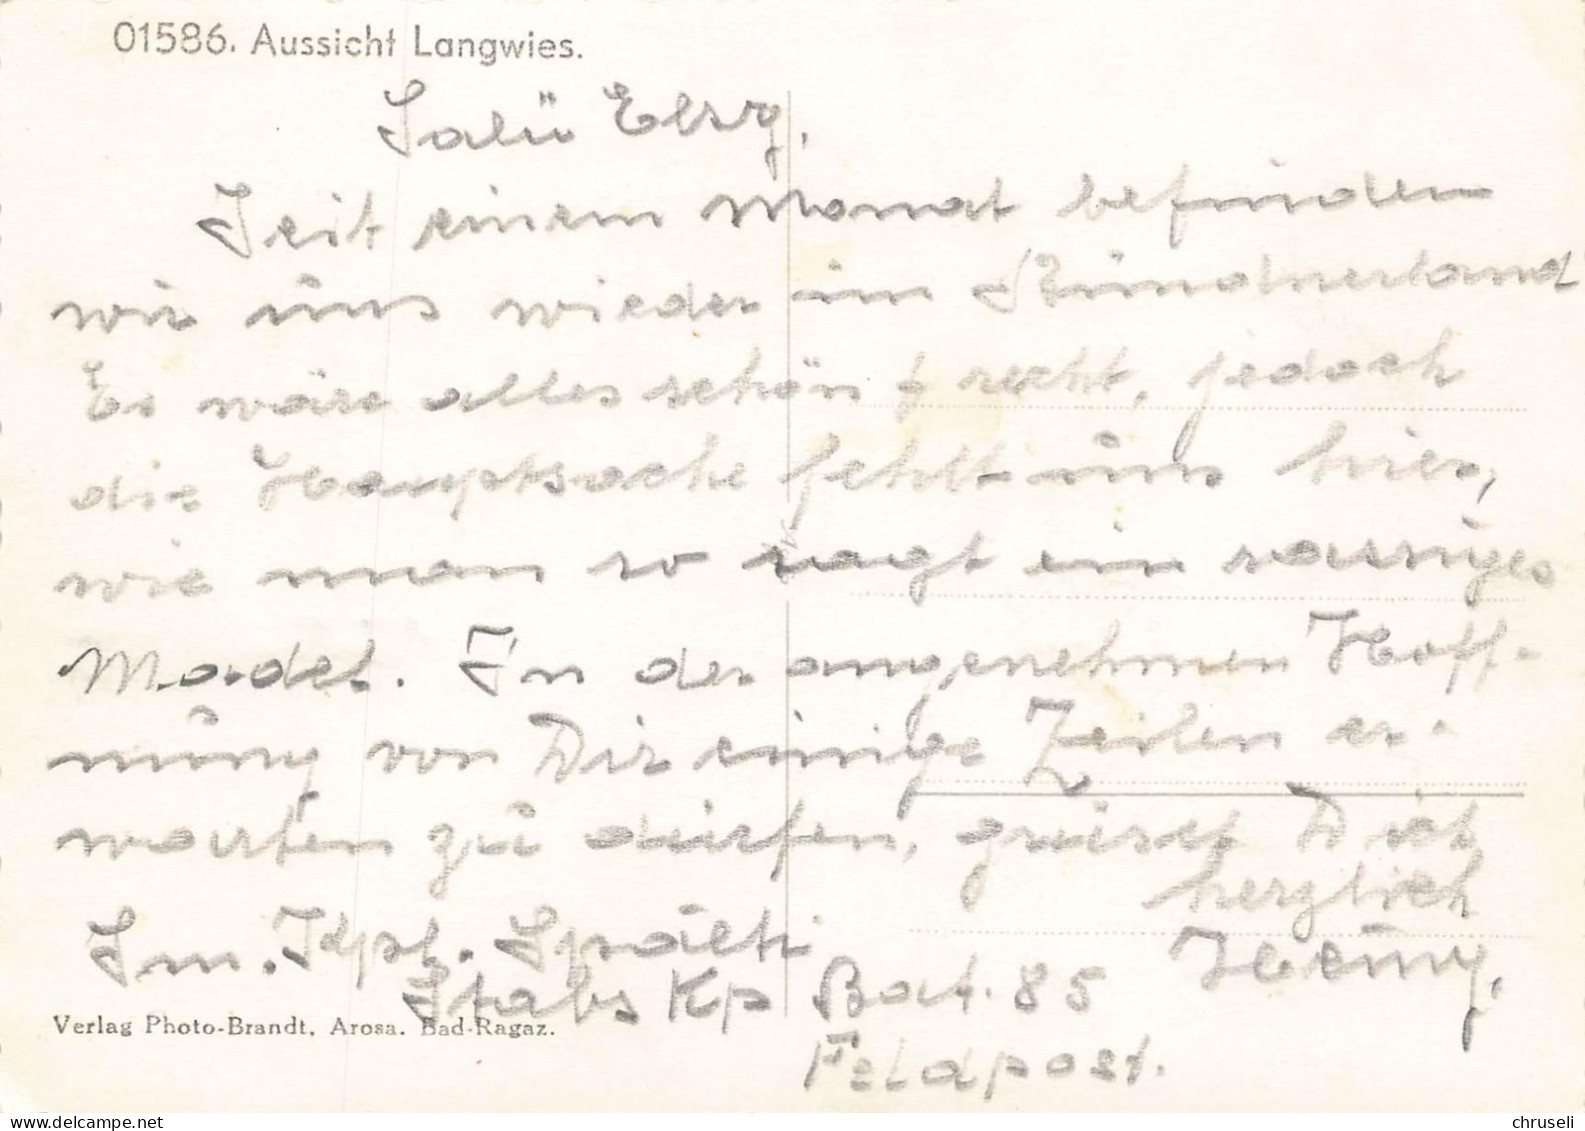 01586. Aussicht Langwies.
Salü Elsy,
Seit einem Monat befinden
wir uns wieder im Bündnerland
Es wäre alles schön & recht, jedoch
die Hauptsache fehlt uns hier,
wie man so sagt ein rassiges
Madel. In der angenehmen Hoff-
nung von Dir einige Zeilen er-
warten zu dürfen, grüsst Dich
herzlich
Im. Kpl. Spälti
Heiny.
Stabs Kp Bat. 85
Feldpost.
Verlag Photo-Brandt, Arosa. Bad-Ragaz.
chruseli